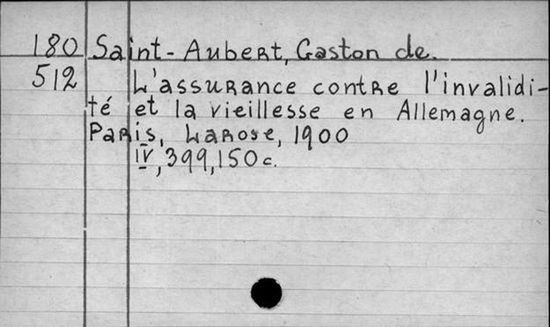 180 Saint-Aubert, Gaston de.
512 L'assurance contre l'invalidi-
té et la vieillesse en Allemagne.
Paris, Larose, 1900
IV, 399, 150 c.